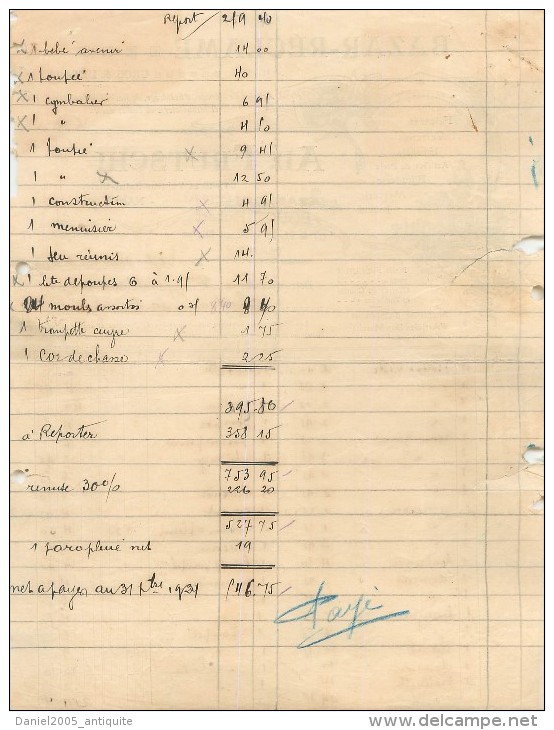 Report 219 20
1 bebé avenir 14 00
1 poupée 40
1 cymbalier 6 95
1 " 4 50
1 poupée 9 45
1 " 12 50
1 construction 4 95
1 menuisier 5 95
1 Jeu réunis 14.
1 lot de poupes 6 à 1.95 11 70
mouls assortis
1 trompette cuyre 1 75
1 Cor de chasse 2 25
395.80
à Reporter 358 15
753 95
remise 30 0/0 226 20
527 75
1 parapluie net 19
net a payer au 31 1931 546.75
Payé
Daniel2005_antiquite
delcampe.net